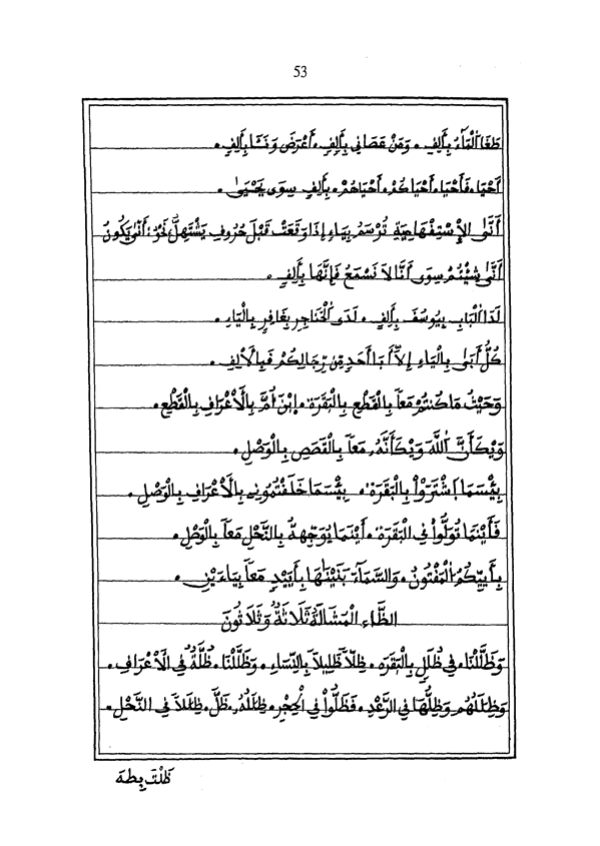 53
طَغَا اَ۬لْمَآءُ بِأَلِفٍ. وَمَنْ عَصَانِي بِأَلِفٍ. أَعْرَضَ وَنَـَٔا بِأَلِفٍ.
أَحْيَا. فَأَحْيَا. أَحْيَاكُمْ. أَحْيَاهُمْ. بِأَلِفٍ سِوَى يَحْيَىٰ.
أَنَّىٰ الْإِسْتِفْهَامِيَةِ تُوسَمُ بِيَاءٍ إِذَا وَقَعَتْ قَبْلَ حُرُوفِ يَشْتَهِلُّ نَحْوُ: أَنَّىٰ يَكُونُ
أَنَّىٰ شِئْتُمْ سِوَى أَنَّا لَا نَسْمَعُ فَإِنَّهَا بِأَلِفٍ.
لَدَا اَ۬لْبَابِ بِيُوسُفَ بِأَلِفٍ. لَدَى اَ۬لْحَنَاجِرِ بِغَافِرٍ بِالْيَاءِ.
كُلُّ أَبَىٰ بِالْيَاءِ إِلَّا أَبَا أَحَدٍ مِّن رِّجَالِكُمْ فَبِالْأَلِفِ.
وَحَيْثُ مَا كُنتُمْ مَعاً بِالْقَطْعِ بِالْبَقَرَةِ. اِبْنَ أُمَّ بِالْأَعْرَافِ بِالْقَطْعِ.
وَيْكَأَنَّ اَ۬للَّهَ وَيْكَأَنَّهُ. مَعاً بِالْقَصَصِ بِالْوَصْلِ.
بِيسَمَا اَ۪شْتَرَوْاْ بِالْبَقَرَةِ. بِيسَمَا خَلَفْتُمُونِي بِالْأَعْرَافِ بِالْوَصْلِ.
فَأَيْنَمَا تُوَلُّواْ فِي الْبَقَرَةِ. أَيْنَمَا يُوَجِّههُّ بِالنَّحْلِ مَعاً بِالْوَصْلِ.
بِأَييِّكُمُ اَ۬لْمَفْتُونُ. وَالسَّمَآءَ بَنَيْنَٰهَا بِأَيْيدٍ مَعاً بِيَاءَيْنِ.
الظَّاءُ الْمُشَالَةُ ثَلَاثَةٌ وَثَلَاثُونَ
وَظَلَّلْنَا. فِي ظُلَلٍ بِالْبَقَرَةِ. ظِلّاً ظَلِيلاً بِالنِّسَاءِ. وَظَلَّلْنَا. ظُلَّةٌ فِي الْأَعْرَافِ.
وَظِلَٰلُهُم وَظِلُّهَا فِي الرَّعْدِ. فَظَلُّواْ فِي الْحِجْرِ. ظِلَٰلُهُ. ظَلَّ. ظِلَٰلاً فِي النَّحْلِ.
ظَلْتَ بِطه